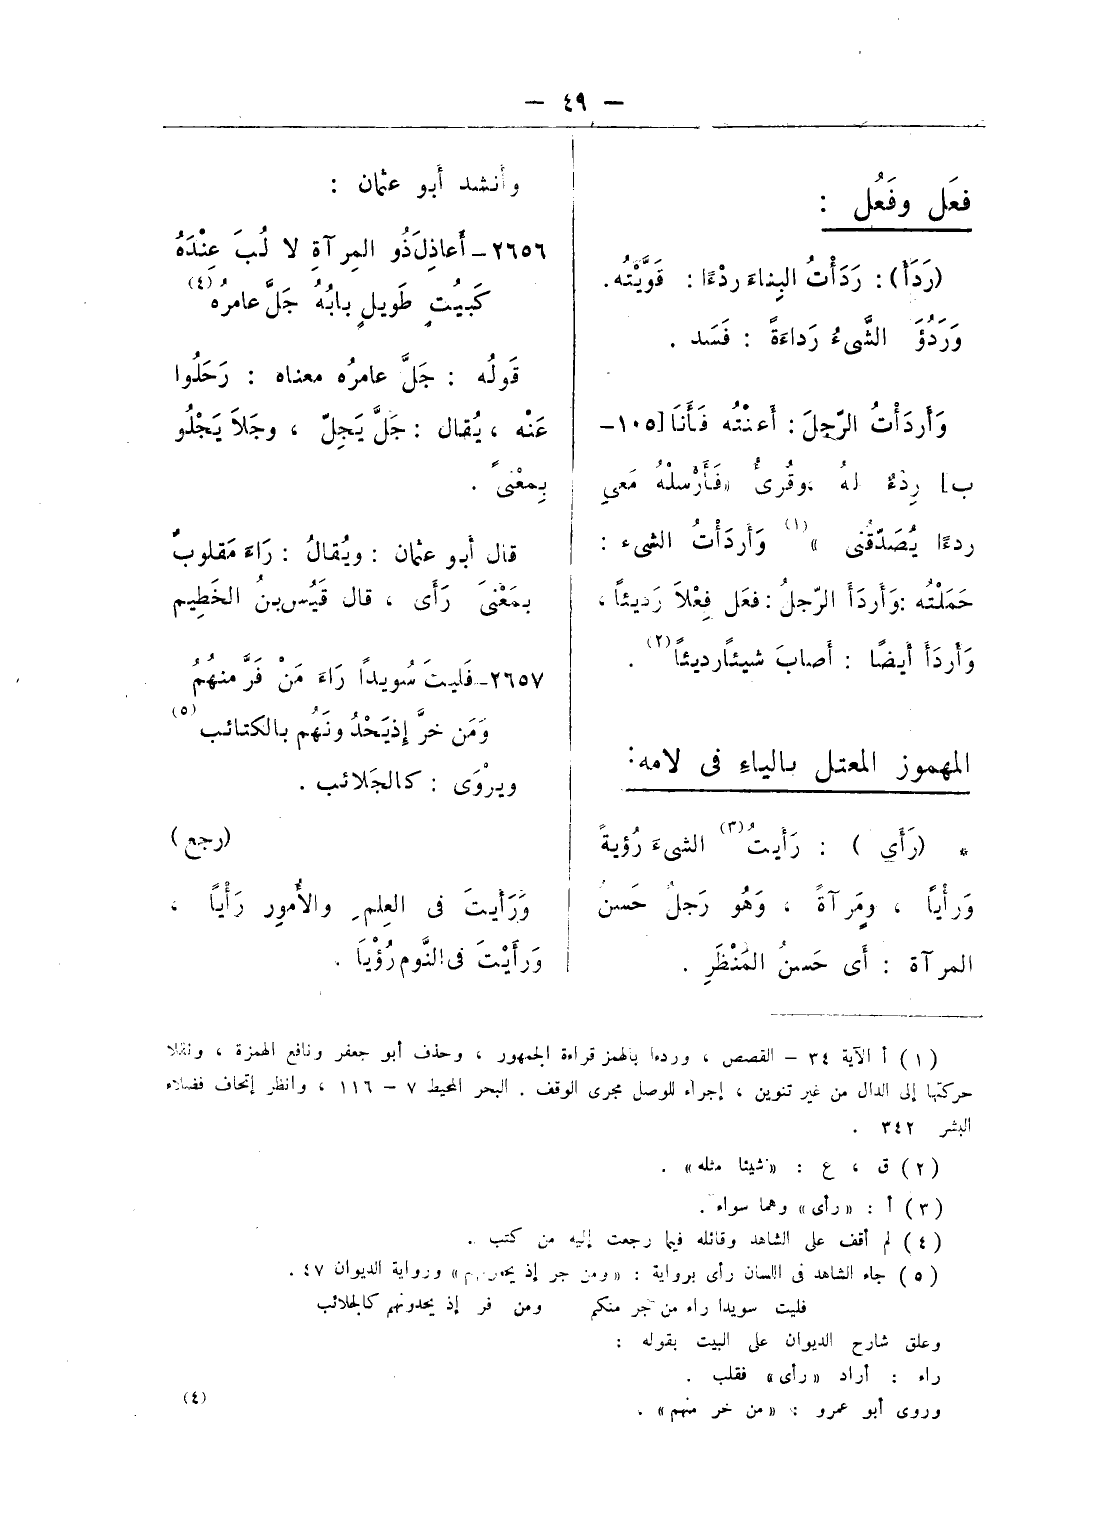 — ٤٩ —
فعَل وفَعُل :
(رَدَأ) : رَدَأْتُ البِناءَ ردْءًا : قَوَّيْتُه.
وَرَدُؤَ الشَّىءُ رَداءَةً : فَسَد .
وَأَردَأْتُ الرّجلَ : أَعنْتُه فَأَنَا [١٠٥ –
ب] رِدْءٌ لهُ ،وقُرئَ «فَأَرْسلْهُ مَعىِ
ردءًا يُصَدّقُنى »(١) وَأَردَأْتُ الشىء :
حَمَلْتُه :وَأَردَأَ الرّجلُ : فعَل فِعْلاً رَديئاً ،
وَأَردَأَ أيضًا : أَصابَ شيئاً رديئاً(٢) .
المهموز المعتل بالياءِ فى لامه:
* (رَأَي ) : رَأَيتُ(٣) الشىءَ رُؤيةً
وَرأْياً ، ومَرآةً ، وَهُو رَجلٌ حَسنُ
المرآة : أَى حَسنُ المَنْظَرِ .
وأَنشد أَبو عثمان :
٢٦٥٦– أَعاذِلَ ذُو المِرآةِ لا لُبَ عِنْدَهُ
كَبيْتٍ طَويلٍ بابُهُ جَلَّ عامرُهُ(٤)
قَولُه : جَلَّ عامرُه معناه : رَحَلُوا
عَنْه ، يُقال : جَلَّ يَجِلّ ، وجَلاَ يَجْلُو
بِمعْنىً .
قال أَبو عثمان : ويُقالُ : رَاءَ مَقلوبٌ
بمَعْنىَ رَأَى ، قال قَيْسُ بنُ الخَطِيم
٢٦٥٧– فَليتَ سُويداً رَاءَ مَنْ فَرَّ منهُمُ
وَمَن خرَّ إِذيَحْدُ ونَهُم بالكتائب(٥)
ويرْوَى : كالجَلائب .
(رجع)
وَرَأَيتَ فى العِلمِ والأُمورِ رَأْياً ،
وَرأَيْتَ فى النَّوم رُؤْيَا .
(١) أ الآية ٣٤ – القصص ، وردءا بالهمز قراءة الجمهور ، وحذف أبو جعفر ونافع الهمزة ، ونقلا
حركتها إلى الدال من غير تنوين ، إجراء للوصل مجرى الوقف . البحر المحيط ٧ – ١١٦ ، وانظر إتحاف فضلاء
البشر ٣٤٢ .
(٢) ق ، ع : «شيئا مثله» .
(٣) أ : «رأى» وهما سواء .
(٤) لم أقف على الشاهد وقائله فيما رجعت إليه من كتب .
(٥) جاء الشاهد فى اللسان رأى برواية : «ومن جر إذ يحدونهم» ورواية الديوان ٤٧ .
فليت سويدا راء من جر منكم ومن فر إذ يحدونهم كالجلائب
وعلق شارح الديوان على البيت بقوله :
راء : أراد «رأى» فقلب .
وروى أبو عمرو : «من خر منهم» .
(٤)